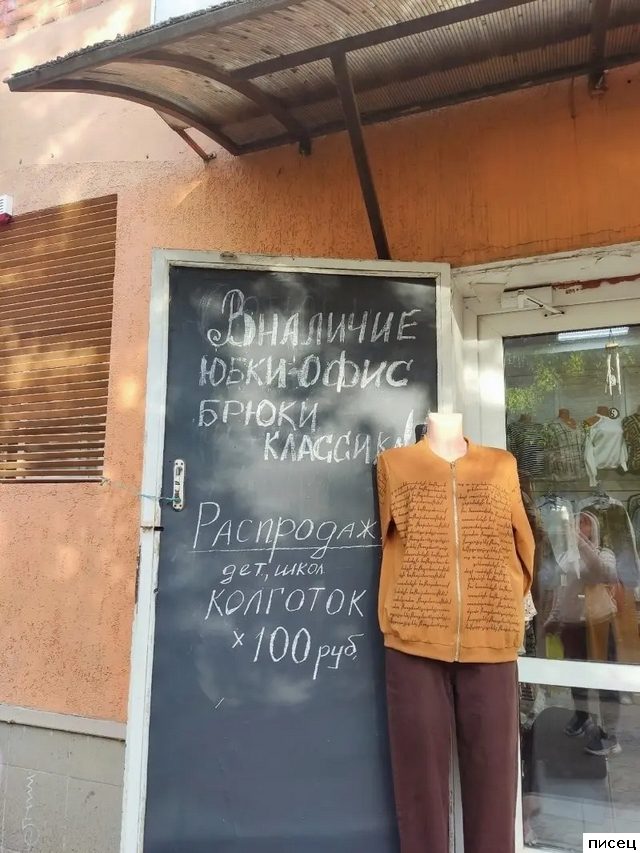 ВНАЛИЧИЕ
ЮБКИ-ОФИС
БРЮКИ
КЛАССИКА!
РАСПРОДАЖ
дет, школ
КОЛГОТОК
х 100 руб,
писец